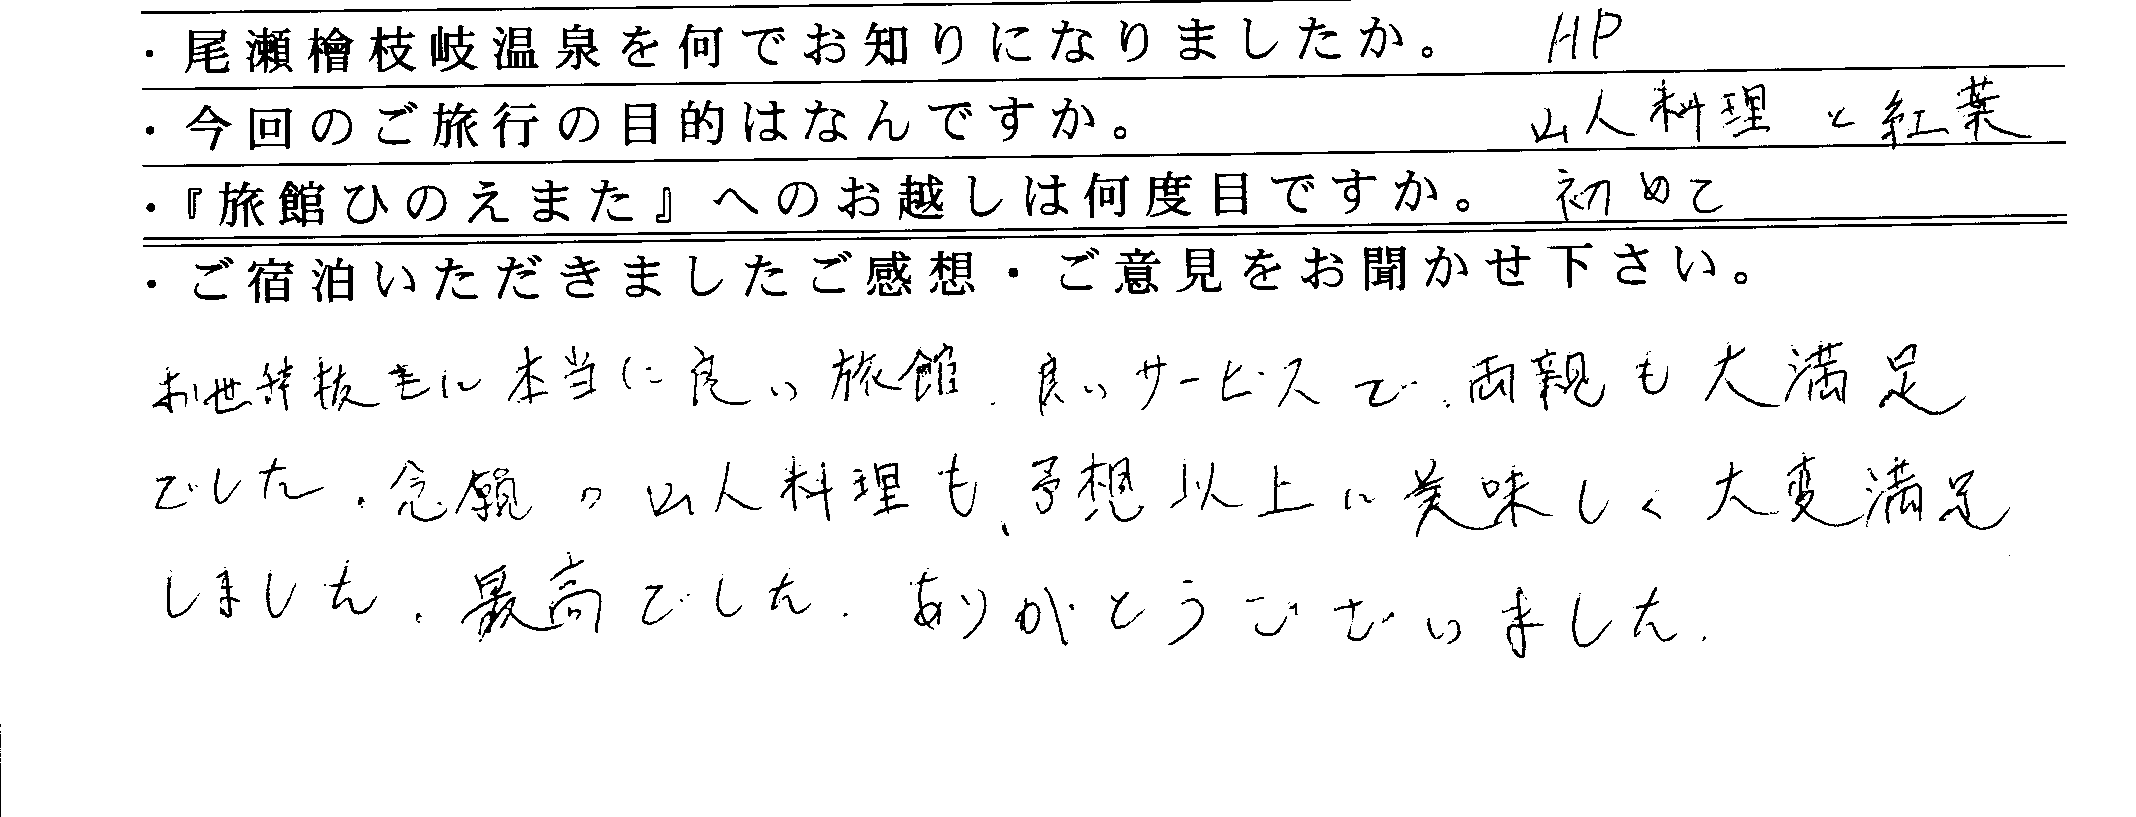 ・尾瀬檜枝岐温泉を何でお知りになりましたか。 HP
・今回のご旅行の目的はなんですか。 山人料理と紅葉
・『旅館ひのえまた』へのお越しは何度目ですか。 初めて
・ご宿泊いただきましたご感想・ご意見をお聞かせ下さい。
お世辞抜きに本当に良い旅館、良いサービスで、両親も大満足
でした。念願の山人料理も、予想以上に美味しく大変満足
しました。最高でした。ありがとうございました。